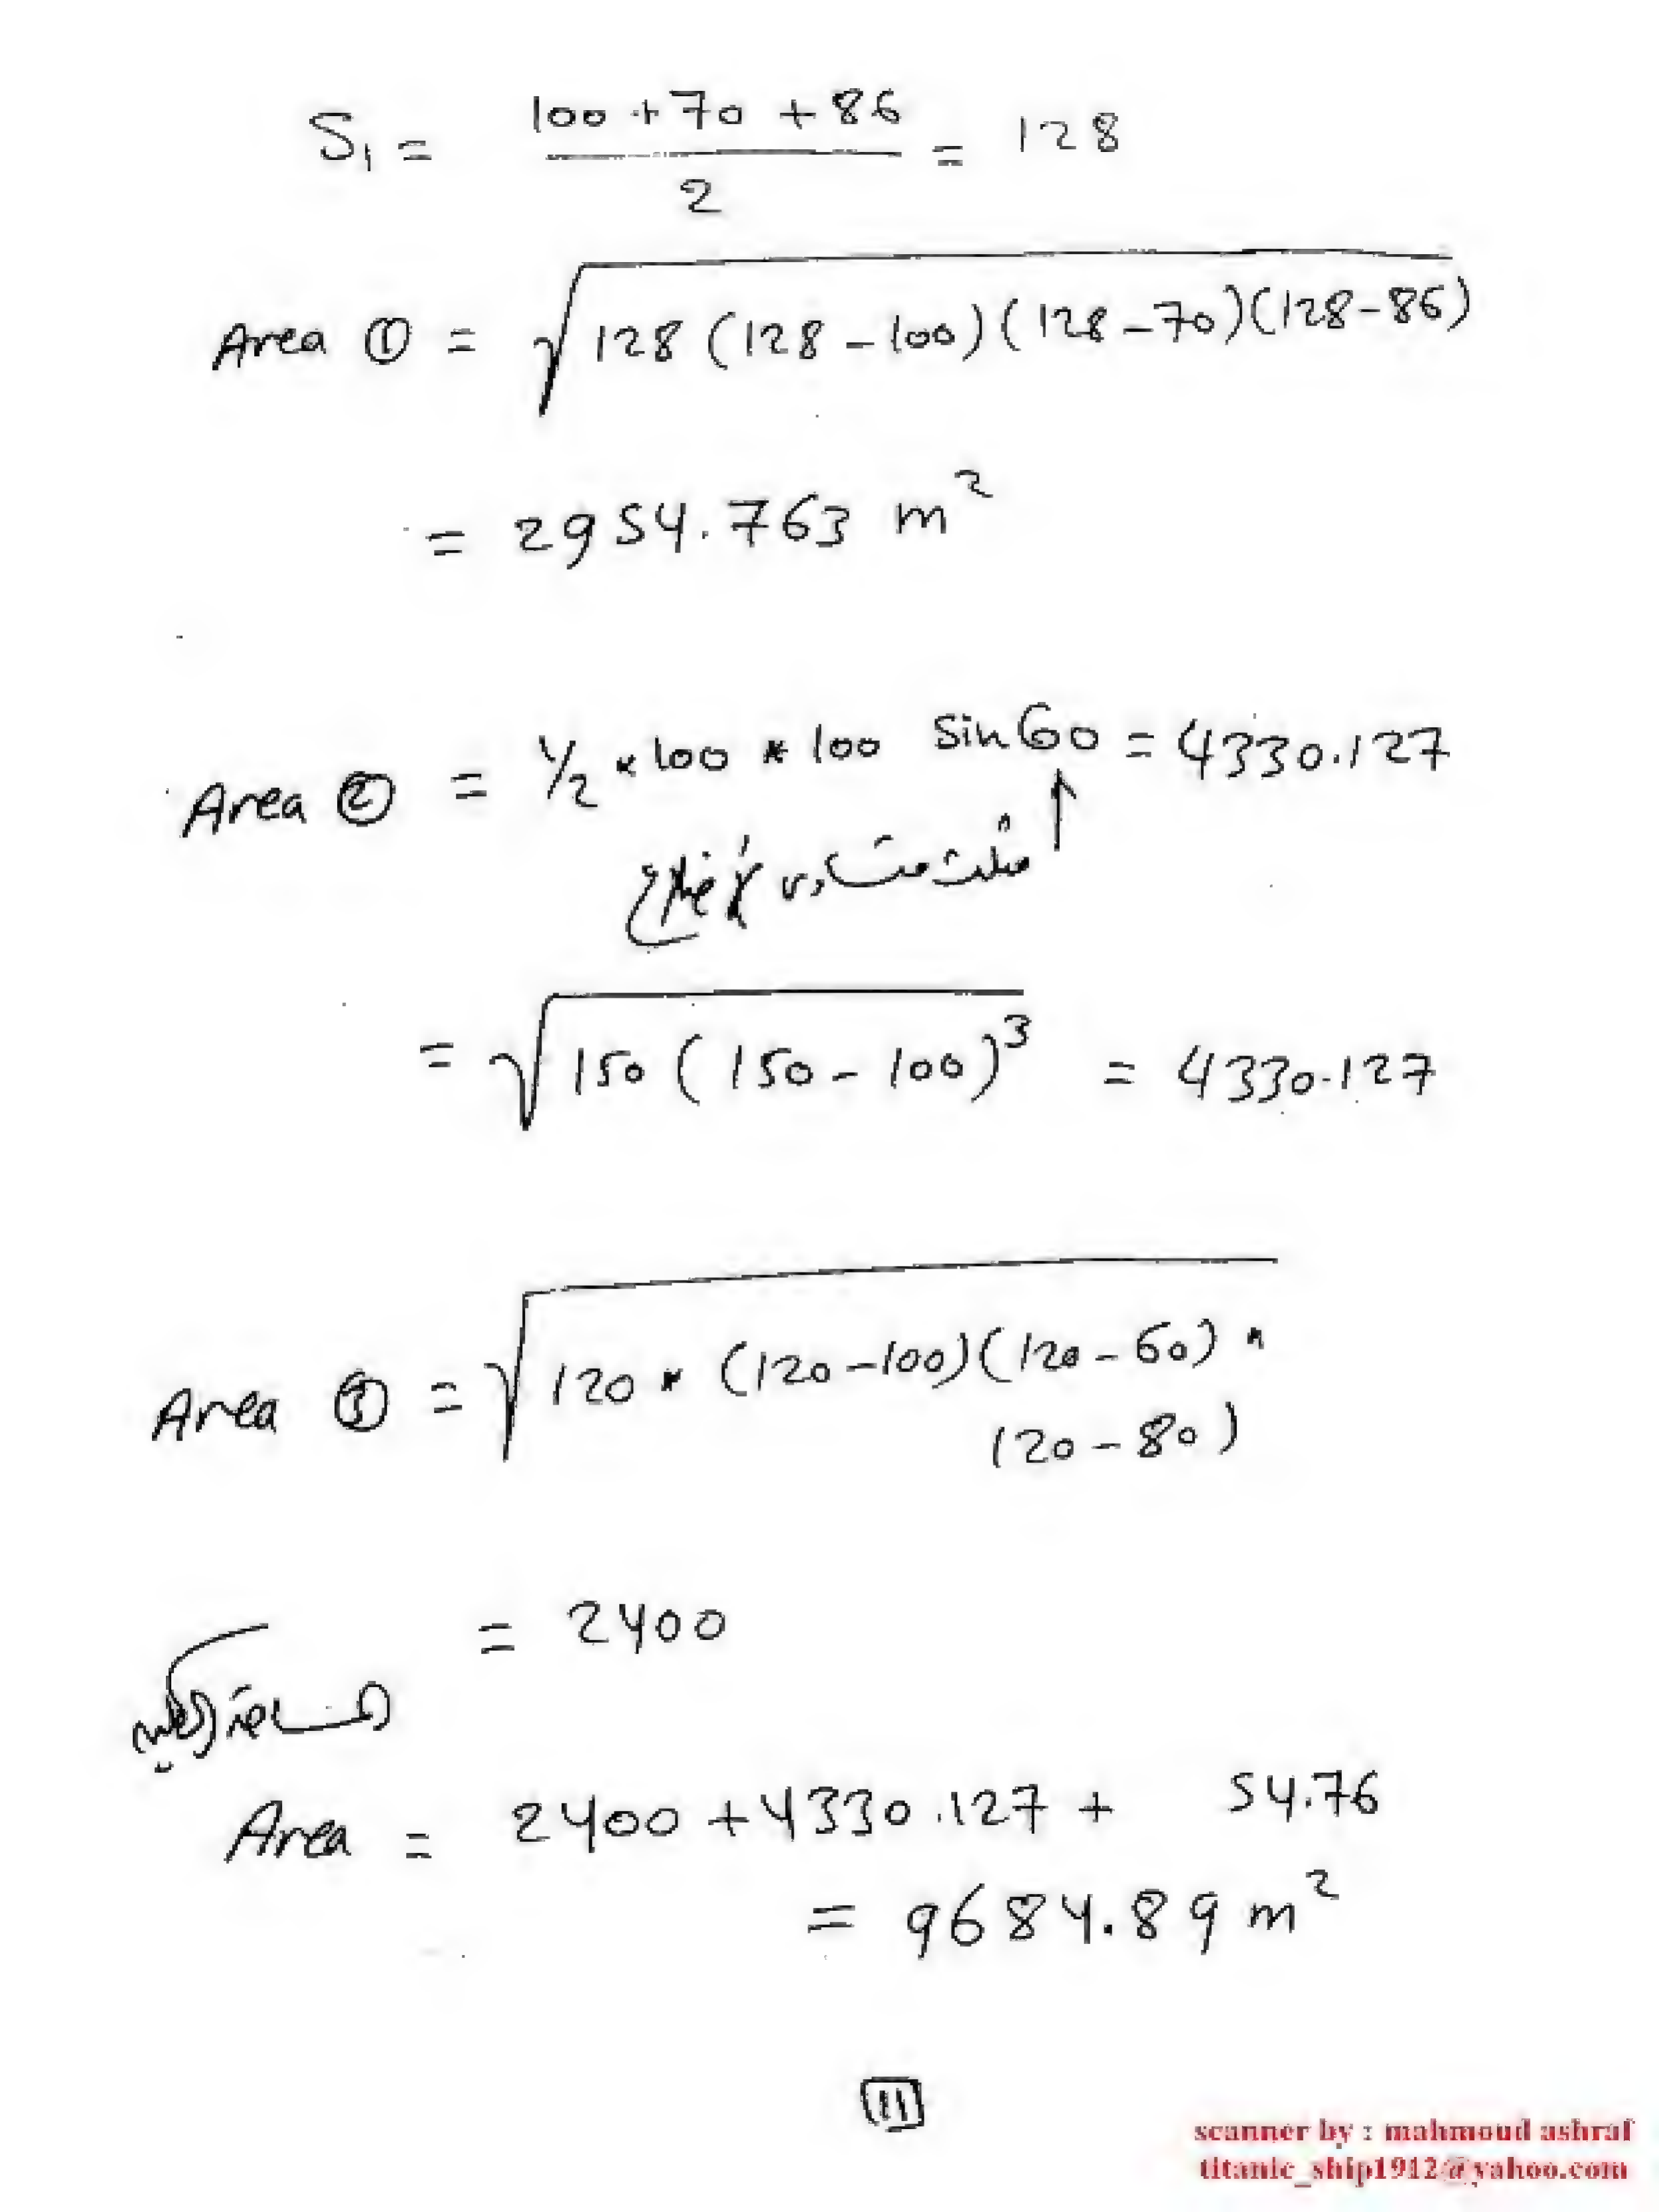 S₁ = (100 + 70 + 86) / 2 = 128
Area ① = √(128 (128 - 100) (128 - 70) (128 - 86))
= 2954.763 m²
Area ② = 1/2 * 100 * 100 sin 60 = 4330.127
↑ مثلث متساوى الأضلاع
= √(150 (150 - 100)³) = 4330.127
Area ③ = √120 * (120 - 100) (120 - 60) *
(120 - 80)
= 2400
Area = 2400 + 4330.127 + 54.76
= 9684.89 m²
11
scanner by : mahmoud ashraf
titanic_ship1912@yahoo.com